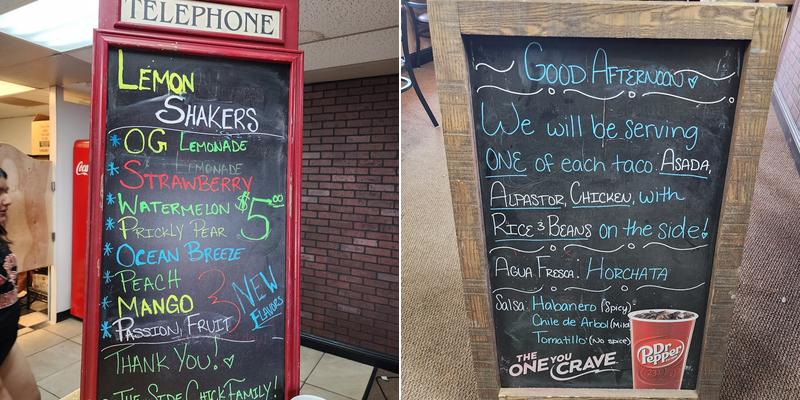 TELEPHONE
LEMON
SHAKERS
* OG LEMONADE
LEMONADE
* STRAWBERRY
* WATERMELON $5.00
* PRICKLY PEAR
* OCEAN BREEZE
* PEACH
* MANGO
* PASSION FRUIT
3 NEW
FLAVORS
THANK YOU!
THE SIDE CHICK FAMILY!
Coca
GOOD AFTERNOON
We will be serving
ONE of each taco ASADA,
ALPASTOR, CHICKEN, with
RICE & BEANS on the side!
AGUA FRESCA: HORCHATA
Salsa: Habanero (Spicy)
Chile de Arbol (Mild
Tomatillo (No spice)
THE ONE YOU CRAVE.
Dr Pepper
23